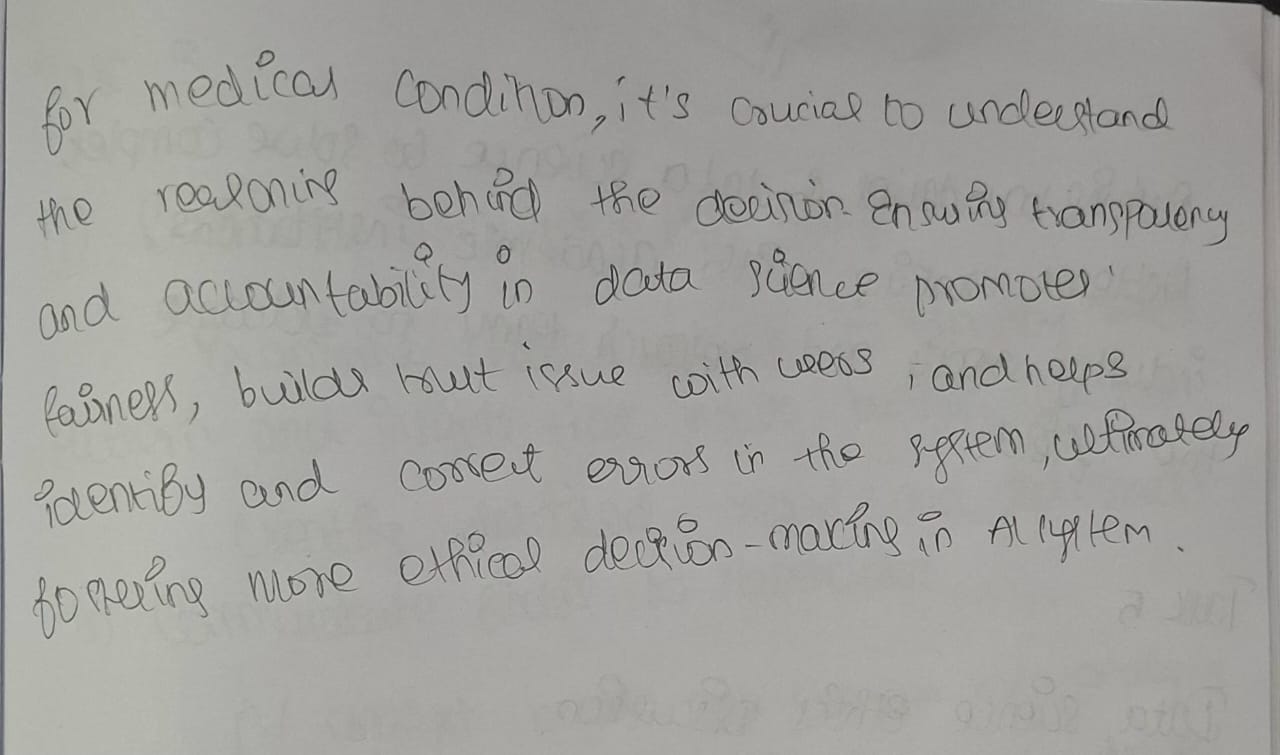 for medical condition, it's crucial to understand
the reasoning behind the decision. Ensuring transparency
and accountability in data science promotes
fairness, builds trust issue with users, and helps
identify and correct errors in the system, ultimately
fostering more ethical decision-making in AI system.